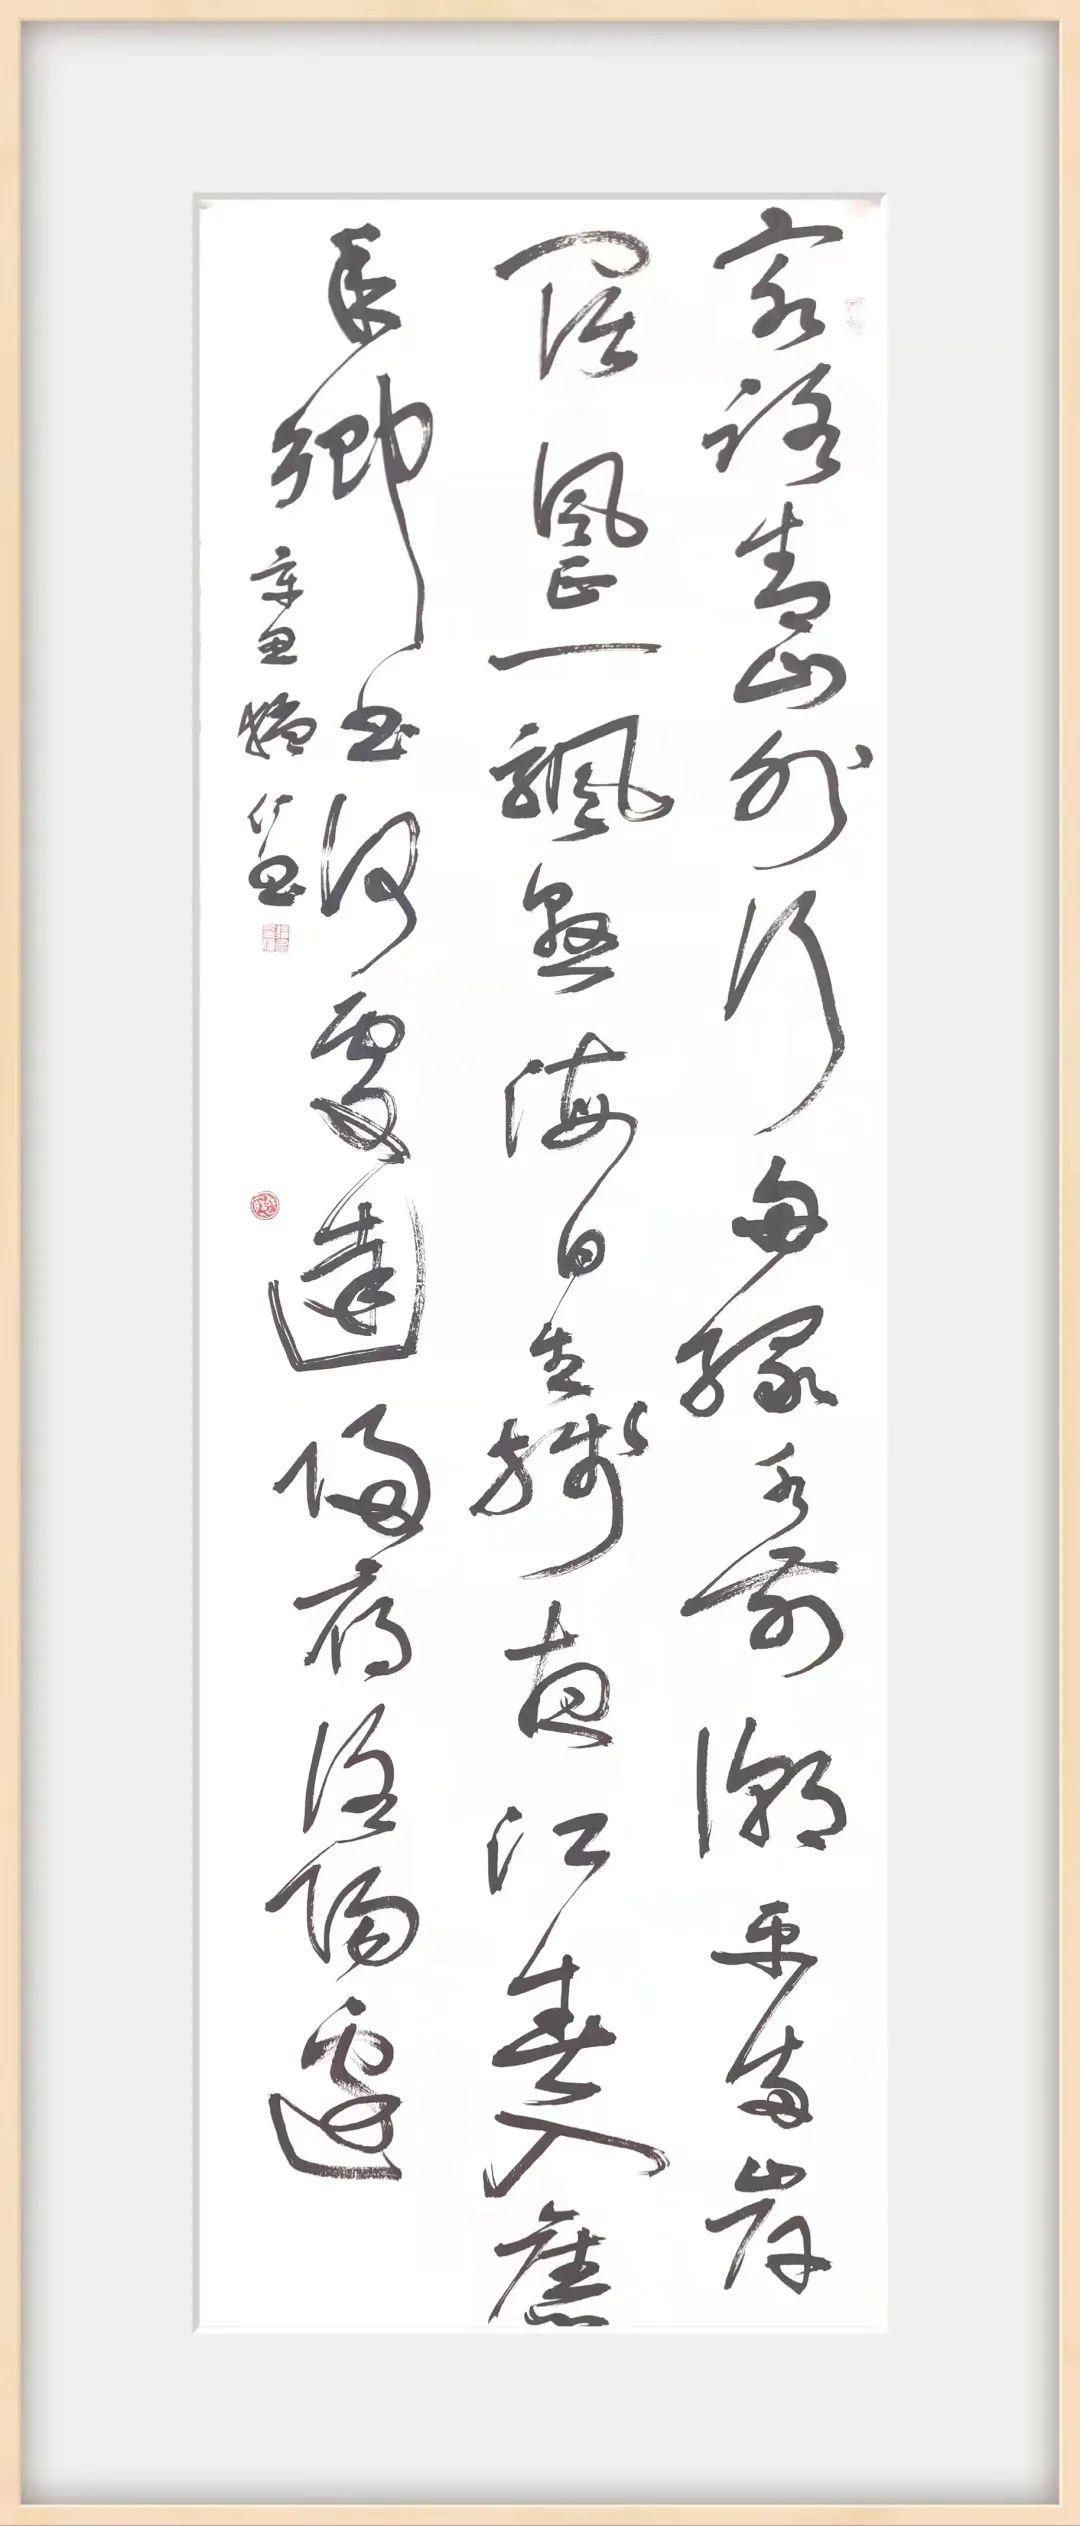 客路青山外行舟緑水前潮平兩岸
闊風正一颿懸海日生殘夜江春入舊
年鄉書何處達歸雁洛陽邊
辛丑